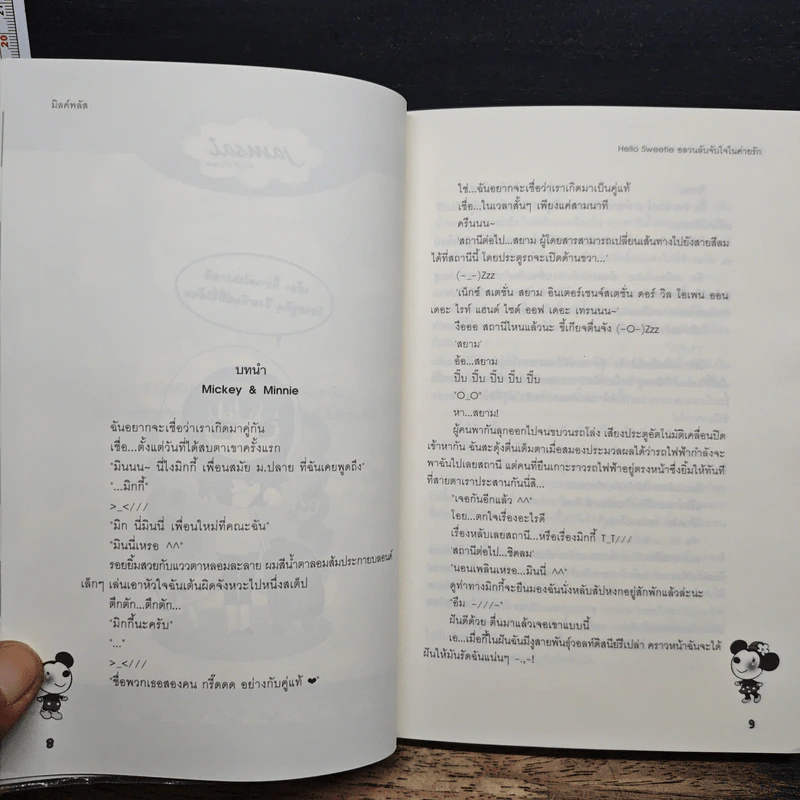 20
มิลค์พลัส
jamsai
บทนำ
Mickey & Minnie
ฉันอยากจะเชื่อว่าเราเกิดมาคู่กัน
เชื่อ...ตั้งแต่วันที่ได้สบตาเขาครั้งแรก
"มินนน~ นี่ไงมิกกี้ เพื่อนสมัย ม.ปลาย ที่ฉันเคยพูดถึง"
"...มิกกี้"
>_<///
"มิก นี่มินนี่ เพื่อนใหม่ที่คณะฉัน"
"มินนี่เหรอ ^^"
รอยยิ้มสวยกับแววตาหลอมละลาย ผมสีน้ำตาลอมส้มประกายบลอนด์
เล็กๆ เล่นเอาหัวใจฉันเต้นผิดจังหวะไปหนึ่งสเต็ป
ตึกตัก...ตึกตัก...
"มิกกี้นะครับ"
"..."
>_<///
"ชื่อพวกเธอสองคน กรี๊ดดด อย่างกับคู่แท้ ❤"
8
Hello Sweetie อลวนลับจับใจในค่ายรัก
ใช่...ฉันอยากจะเชื่อว่าเราเกิดมาเป็นคู่แท้
เชื่อ...ในเวลาสั้นๆ เพียงแค่สามนาที
ครืนนน~
'สถานีต่อไป...สยาม ผู้โดยสารสามารถเปลี่ยนเส้นทางไปยังสายสีลม
ได้ที่สถานีนี้ โดยประตูรถจะเปิดด้านขวา...'
(-_-)Zzz
'เน็กซ์ สเตชั่น สยาม อินเตอร์เชนจ์สเตชั่น ดอร์ วิล โอเพน ออน
เดอะ ไรท์ แฮนด์ ไซด์ ออฟ เดอะ เทรนนน~'
งืออออ สถานีไหนแล้วนะ ขี้เกียจตื่นจัง (-O-)Zzz
'สยาม'
อ้อ...สยาม
ปิ๊บ ปิ๊บ ปิ๊บ ปิ๊บ ปิ๊บ
"O_O"
หา...สยาม!
ผู้คนพากันลุกออกไปจนขบวนรถโล่ง เสียงประตูอัตโนมัติเคลื่อนปิด
เข้าหากัน ฉันสะดุ้งตื่นเต็มตาเมื่อสมองประมวลผลได้ว่ารถไฟฟ้ากำลังจะ
พาฉันไปเลยสถานี แต่คนที่ยืนเกาะราวรถไฟฟ้าอยู่ตรงหน้าซึ่งยิ้มให้ทันที
ที่สายตาเราประสานกันนี่สิ...
"เจอกันอีกแล้ว ^^"
โอย...ตกใจเรื่องอะไรดี
เรื่องหลับเลยสถานี...หรือเรื่องมิกกี้ T_T///
'สถานีต่อไป...ชิดลม'
"นอนเพลินเหรอ...มินนี่ ^^"
ดูท่าทางมิกกี้จะยืนมองฉันนั่งหลับสัปหงกอยู่สักพักแล้วล่ะนะ
"อืม -///-"
ฝันดีด้วย ตื่นมาแล้วเจอเขาแบบนี้
เอ...เมื่อกี้ในฝันฉันมีงูสายพันธุ์วอลท์ดิสนีย์รึเปล่า คราวหน้าฉันจะได้
ฝันให้มันรัดฉันแน่นๆ -.,-!
9